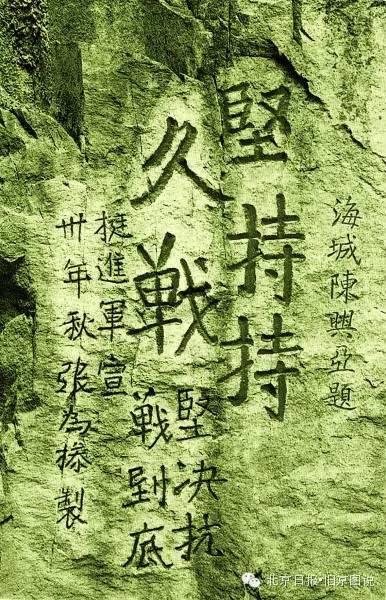 海城陳興亞題
堅持持
久戰
堅決抗
戰到底
挺進軍宣
卅年秋張為棪製
北京日报·旧京图说